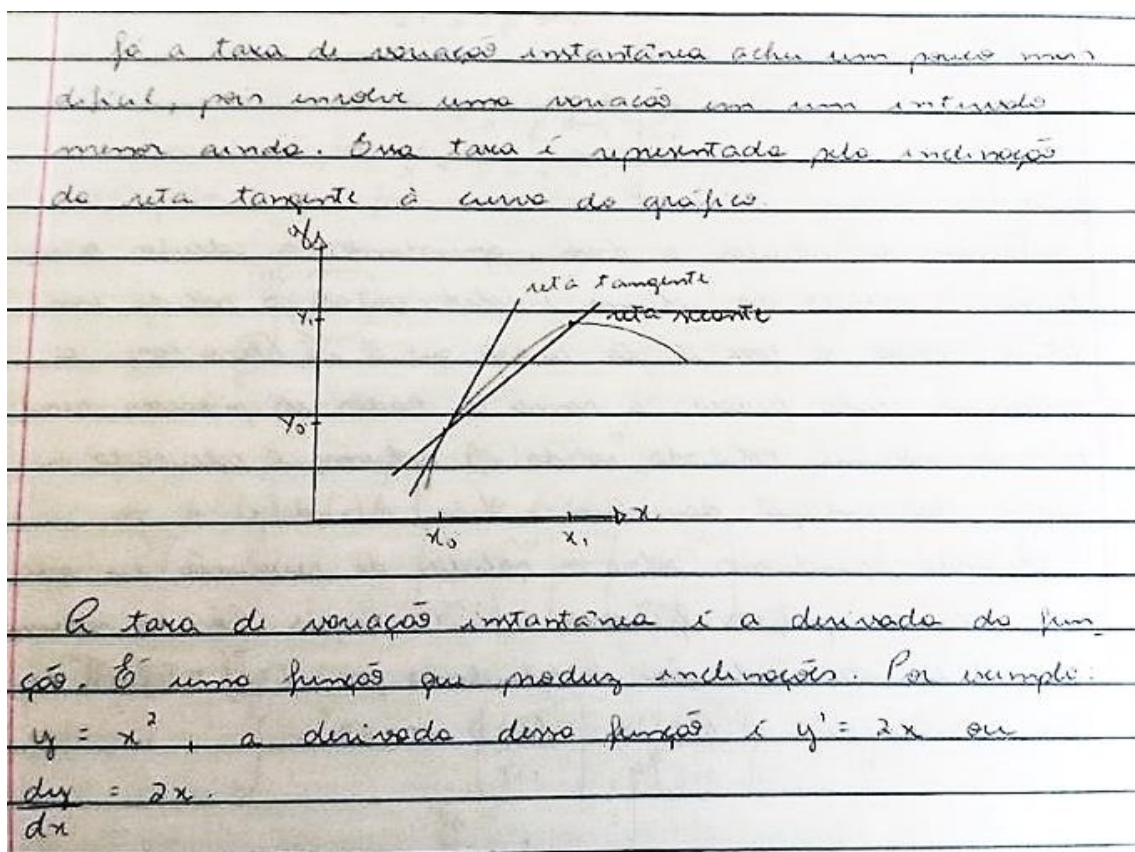 Já a taxa de variação instantânea achei um pouco mais
difícil, pois envolve uma variação em um intervalo
menor ainda. Essa taxa é representada pela inclinação
da reta tangente à curva do gráfico.
y
reta tangente
y₁
reta secante
y₀
x₀
x₁
x
A taxa de variação instantânea é a derivada da fun-
ção. É uma função que produz inclinações. Por exemplo:
y = x², a derivada dessa função é y' = 2x ou
dy/dx = 2x.